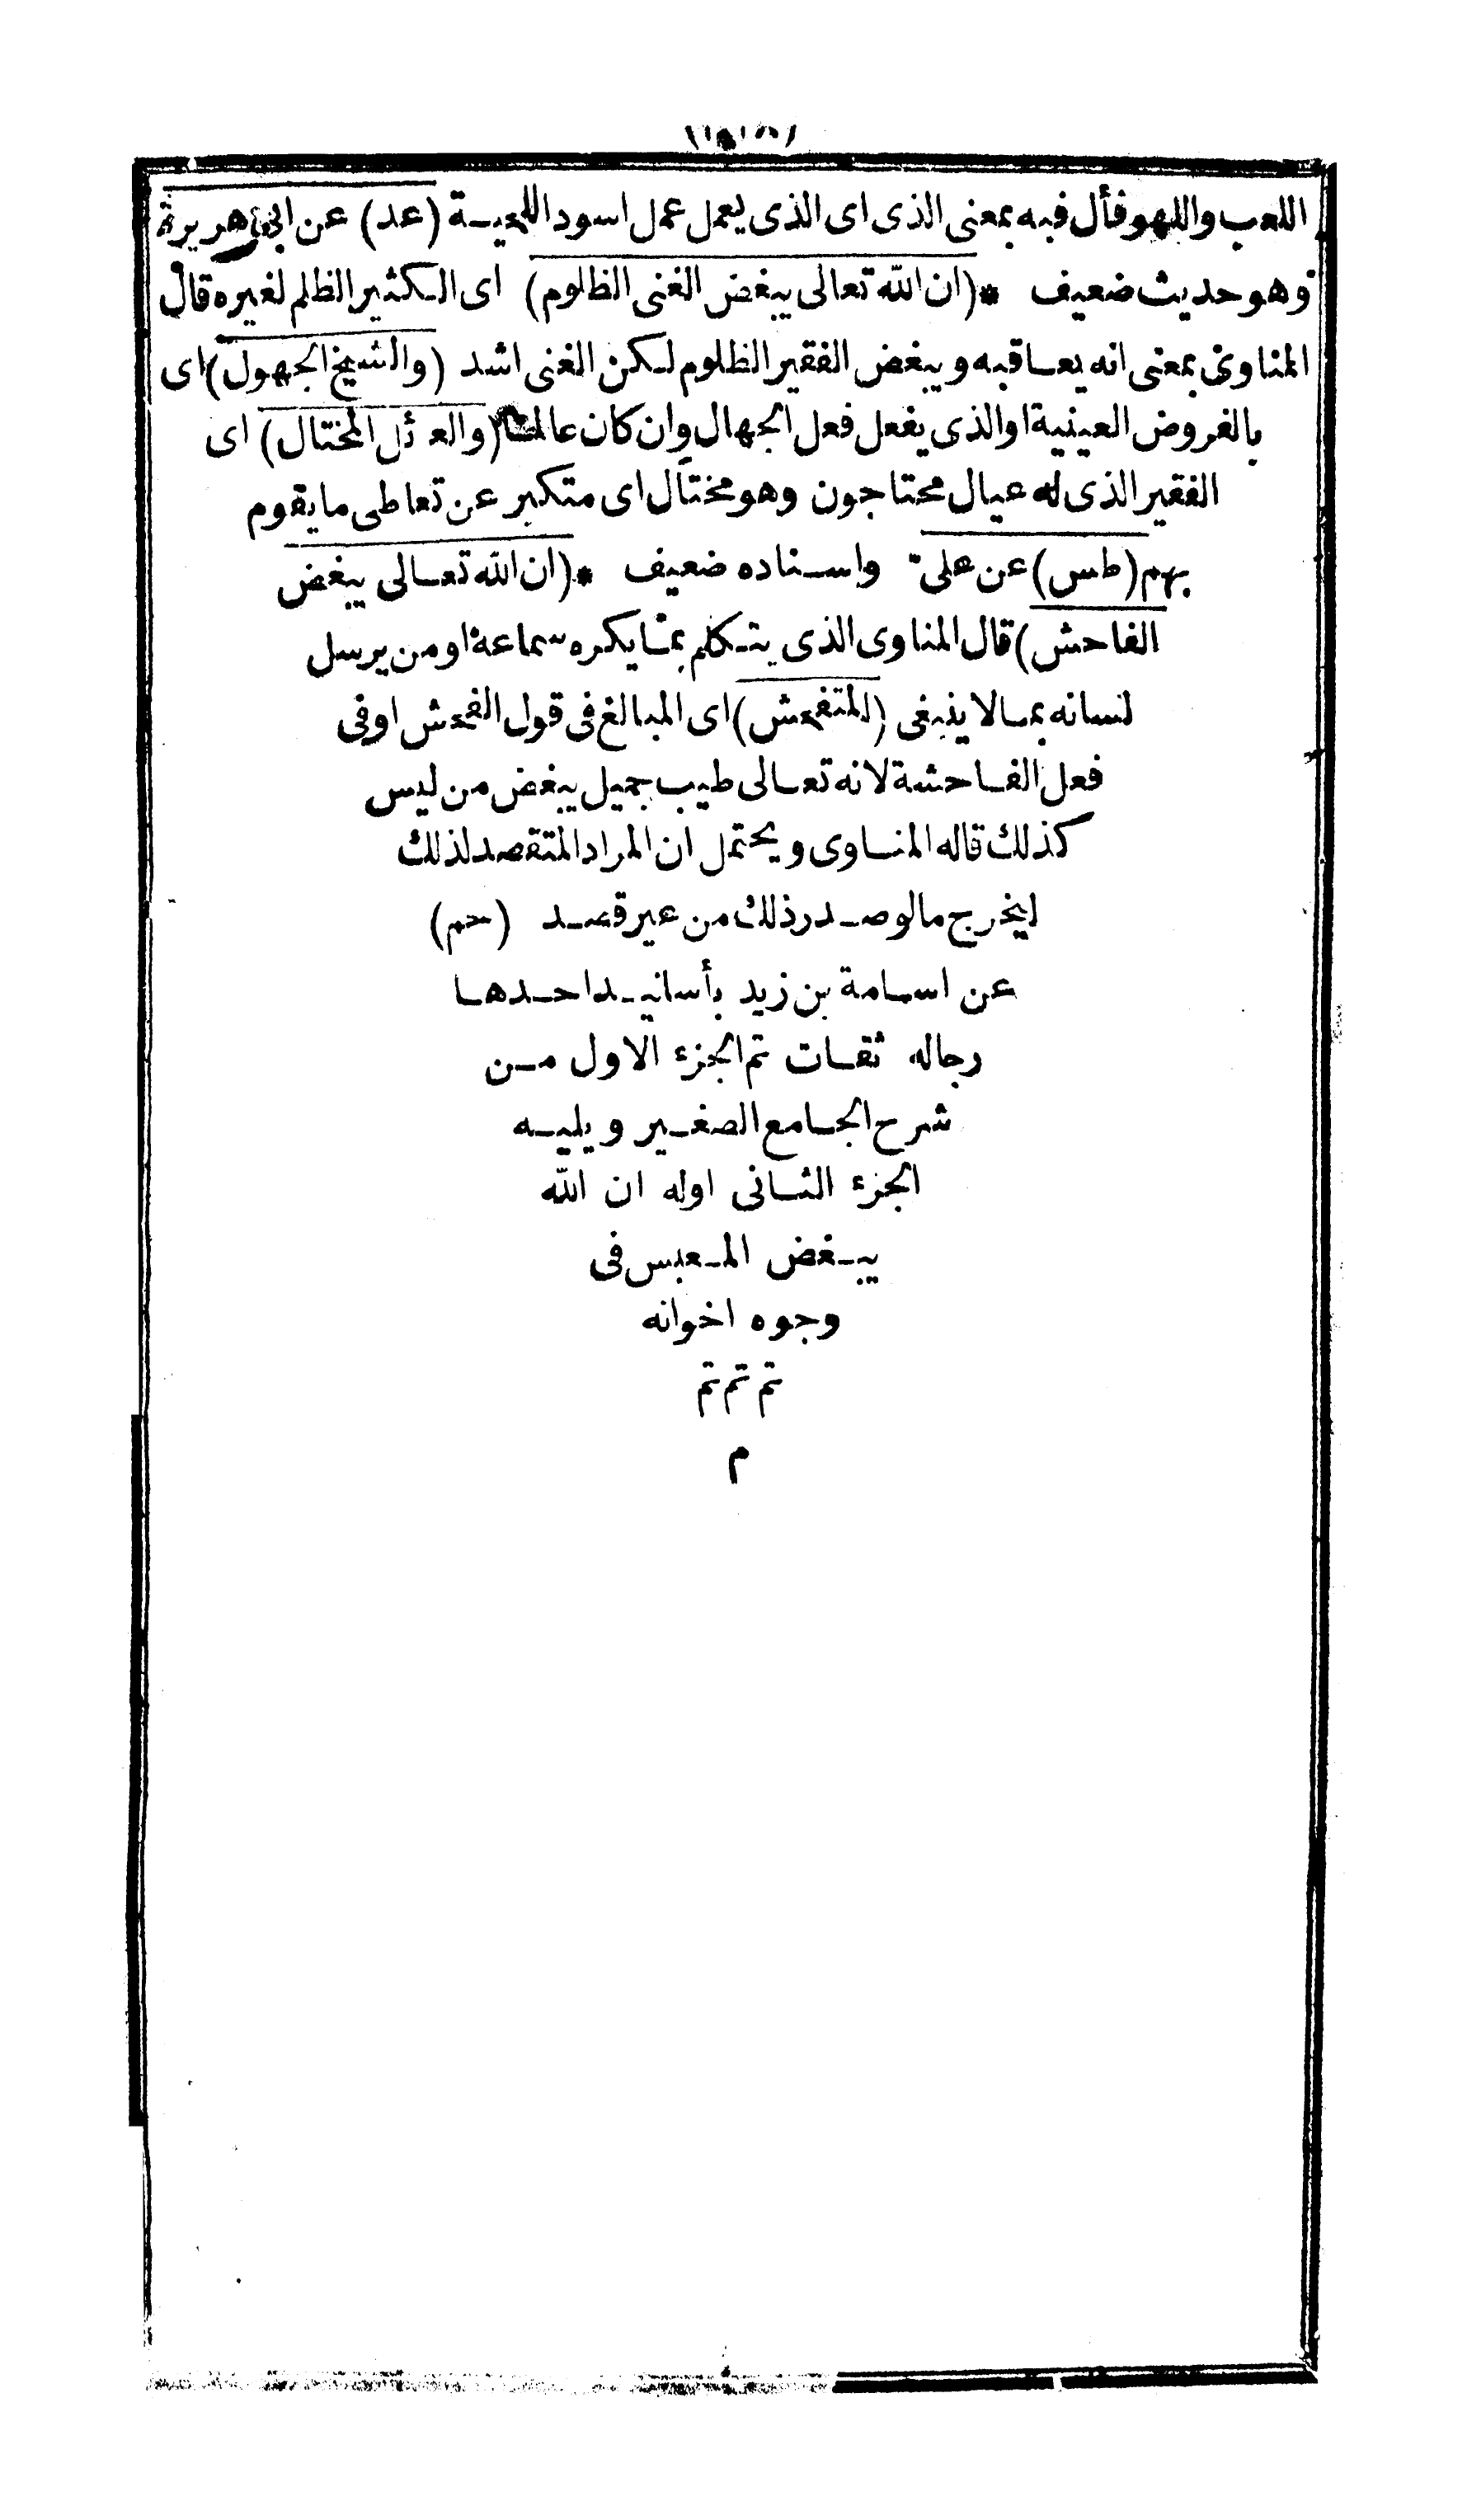 اللعب واللهو فأل فيه بمعنى الذى اى الذى يعمل عمل اسود اللحيـة (عد) عن ابى هريرة
وهو حديث ضعيف * (ان الله تعالى يبغض الغنى الظلوم) اى الكثير الظلم لغيره قال
المناوى بمعنى انه يعاقبه ويبغض الفقير الظلوم لكن الغنى اشد (والشيخ الجهول) اى
بالفروض العينية او الذى يفعل فعل الجهال وان كان عالما (والعائل المختال) اى
الفقير الذى له عيال محتاجون وهو مختال اى متكبر عن تعاطى ما يقوم
بهم (طس) عن على واسناده ضعيف * (ان الله تعالى يبغض
الفاحش) قال المناوى الذى يتكلم بما يكره سماعه او من يرسل
لسانه بما لا ينبغى (المتفحش) اى المبالغ فى قول الفحش او فى
فعل الفاحشة لانه تعالى طيب جميل يبغض من ليس
كذلك قاله المناوى ويحتمل ان المراد المتقصد لذلك
ليخرج ما لو صدر ذلك من غير قصد (حم)
عن اسامة بن زيد بأسانيد احدها
رجاله ثقات تم الجزء الاول من
شرح الجامع الصغير ويليه
الجزء الثانى اوله ان الله
يبغض المعبس فى
وجوه اخوانه
تم تم تم
م